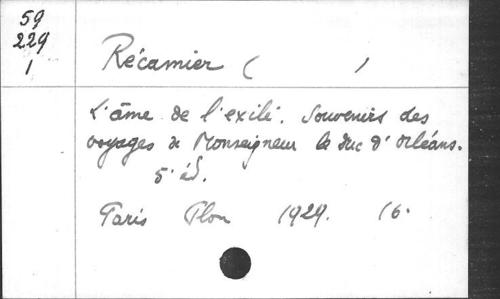 59
229
1
Récamier ( )
L'âme de l'exilé. Souvenirs des
voyages de Monseigneur le duc d'Orléans.
5e éd.
Paris Plon 1929. 16.